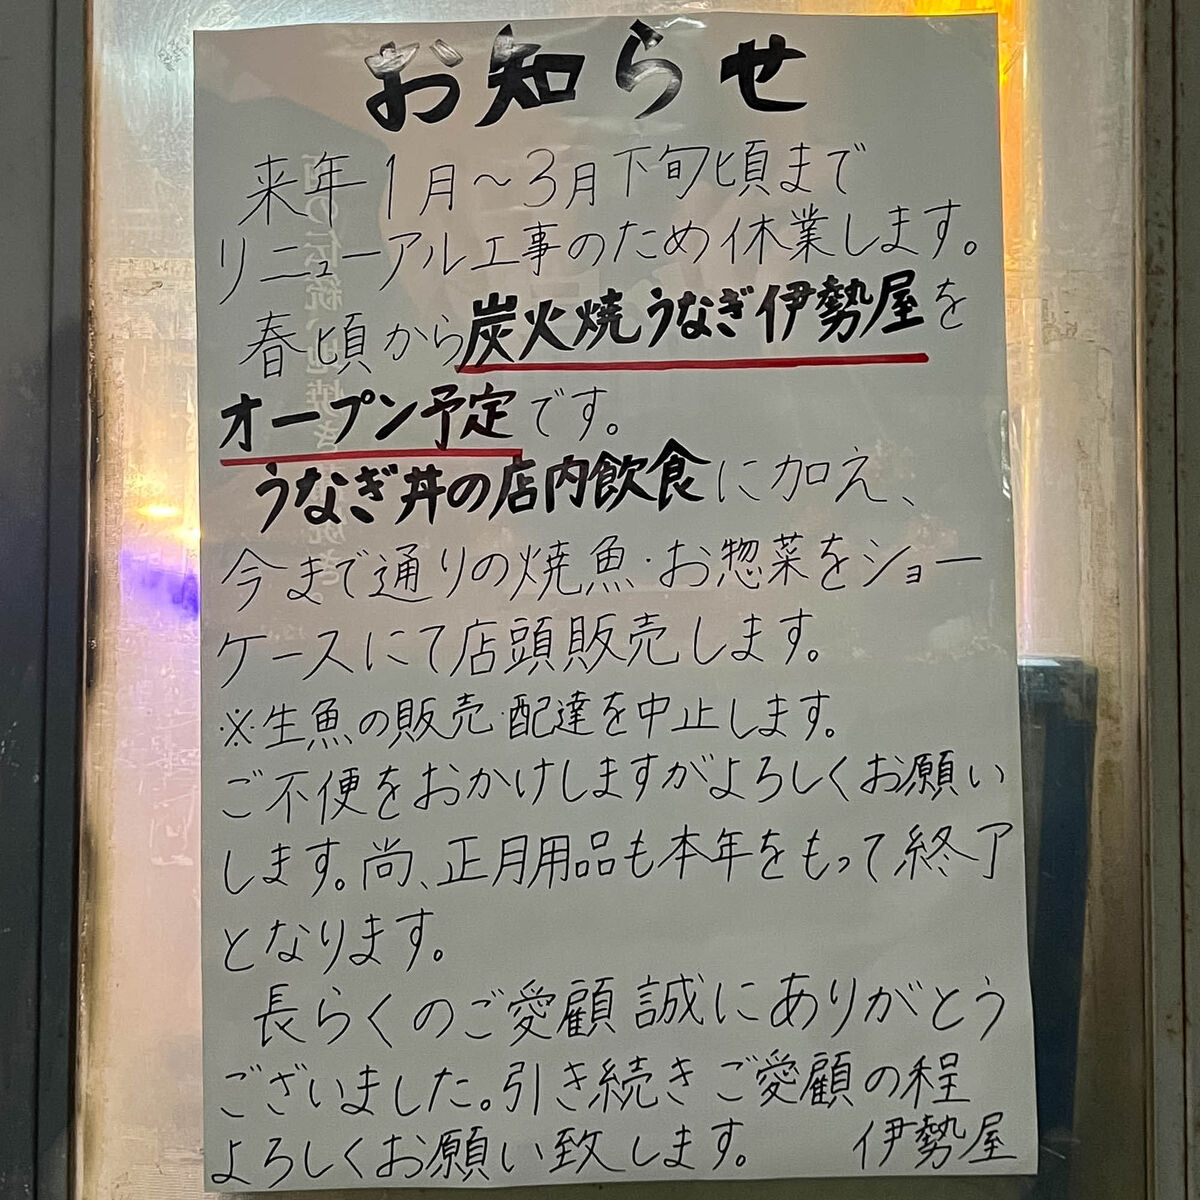 お知らせ
来年1月～3月下旬頃まで
リニューアル工事のため休業します。
春頃から炭火焼うなぎ伊勢屋を
オープン予定です。
うなぎ丼の店内飲食に加え、
今まで通りの焼魚・お惣菜をショー
ケースにて店頭販売します。
※生魚の販売・配達を中止します。
ご不便をおかけしますがよろしくお願い
します。尚、正月用品も本年をもって終了
となります。
長らくのご愛顧誠にありがとう
ございました。引き続きご愛顧の程
よろしくお願い致します。 伊勢屋